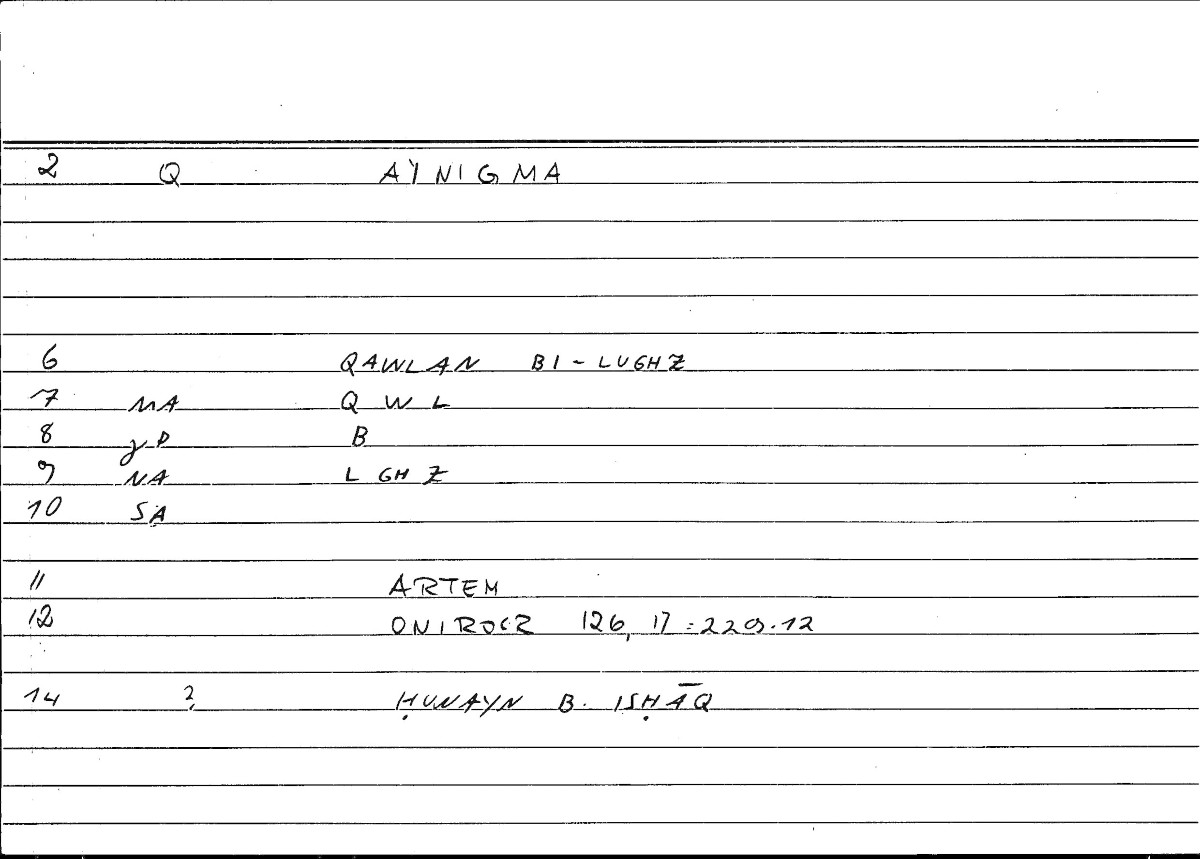 2 Q AÏNIGMA
6 QAWLAN BI-LUGHZ
7 MA Q W L
8 gP B
9 NA L GH Z
10 SA
11 ARTEM
12 ONIROCR 126, 17 = 229.12
14 ? ḤUNAYN B. ISḤĀQ